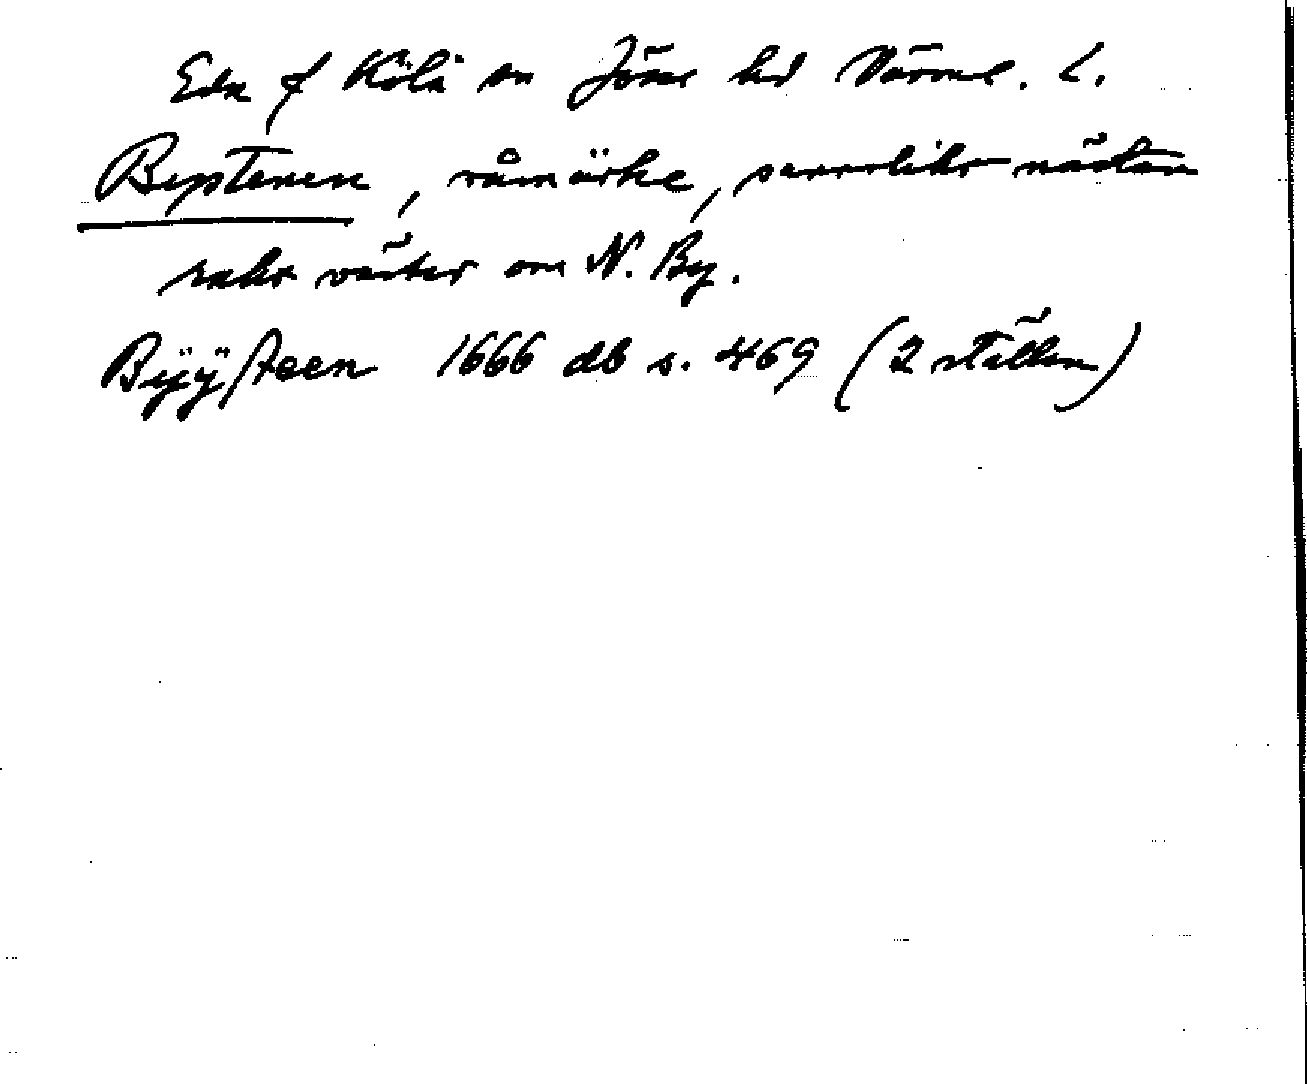 Eda f Köla sn Jösse hd Värml. l.
Bystenen, råmärke, sannolikt nästan
rakt väster om N. By.
Bÿÿsteen 1666 db s. 469 (2 ställen)